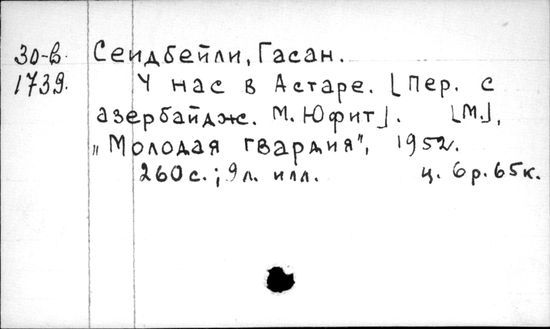 30-в. Сеидбейли, Гасан.
1739. У нас в Астаре. [Пер. с
азербайдж. М. Юфит]. [М.],
„Молодая гвардия", 1952.
260 с.; 9 л. илл. ц. 6 р. 65 к.